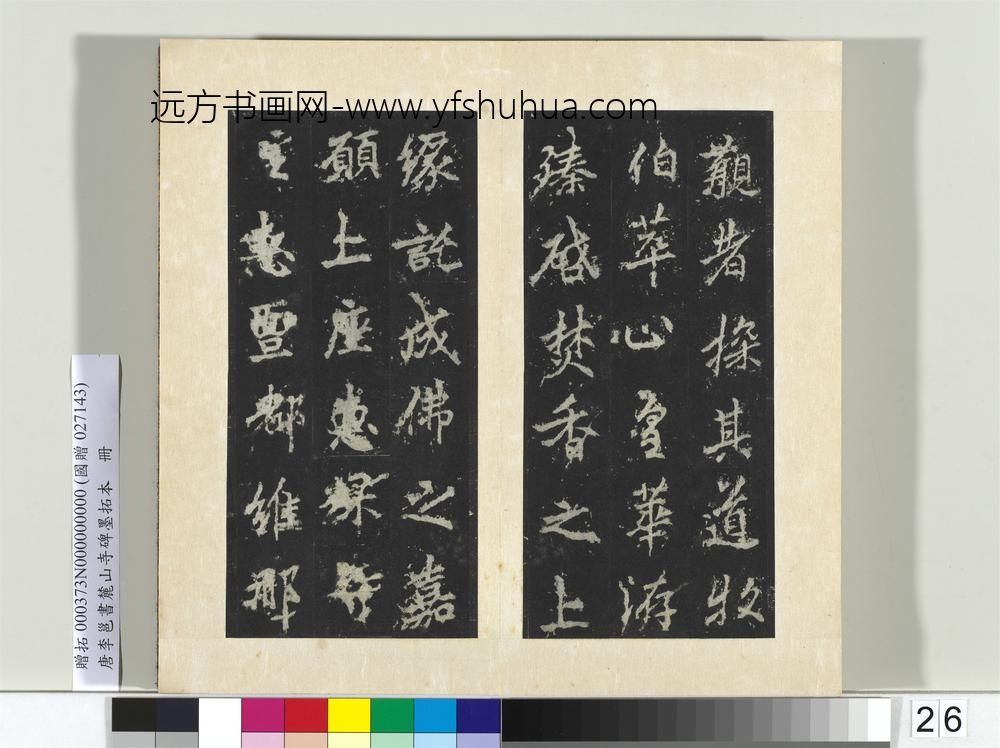 远方书画网-www.yfshuhua.com
觀者探其道牧
伯萃心會華游
臻啓焚香之上
緣託成佛之嘉
願上座惠
主惠曌都維那
贈拓 000373N000000000 (國贈 027143)
唐李邕書麓山寺碑墨拓本 冊
26